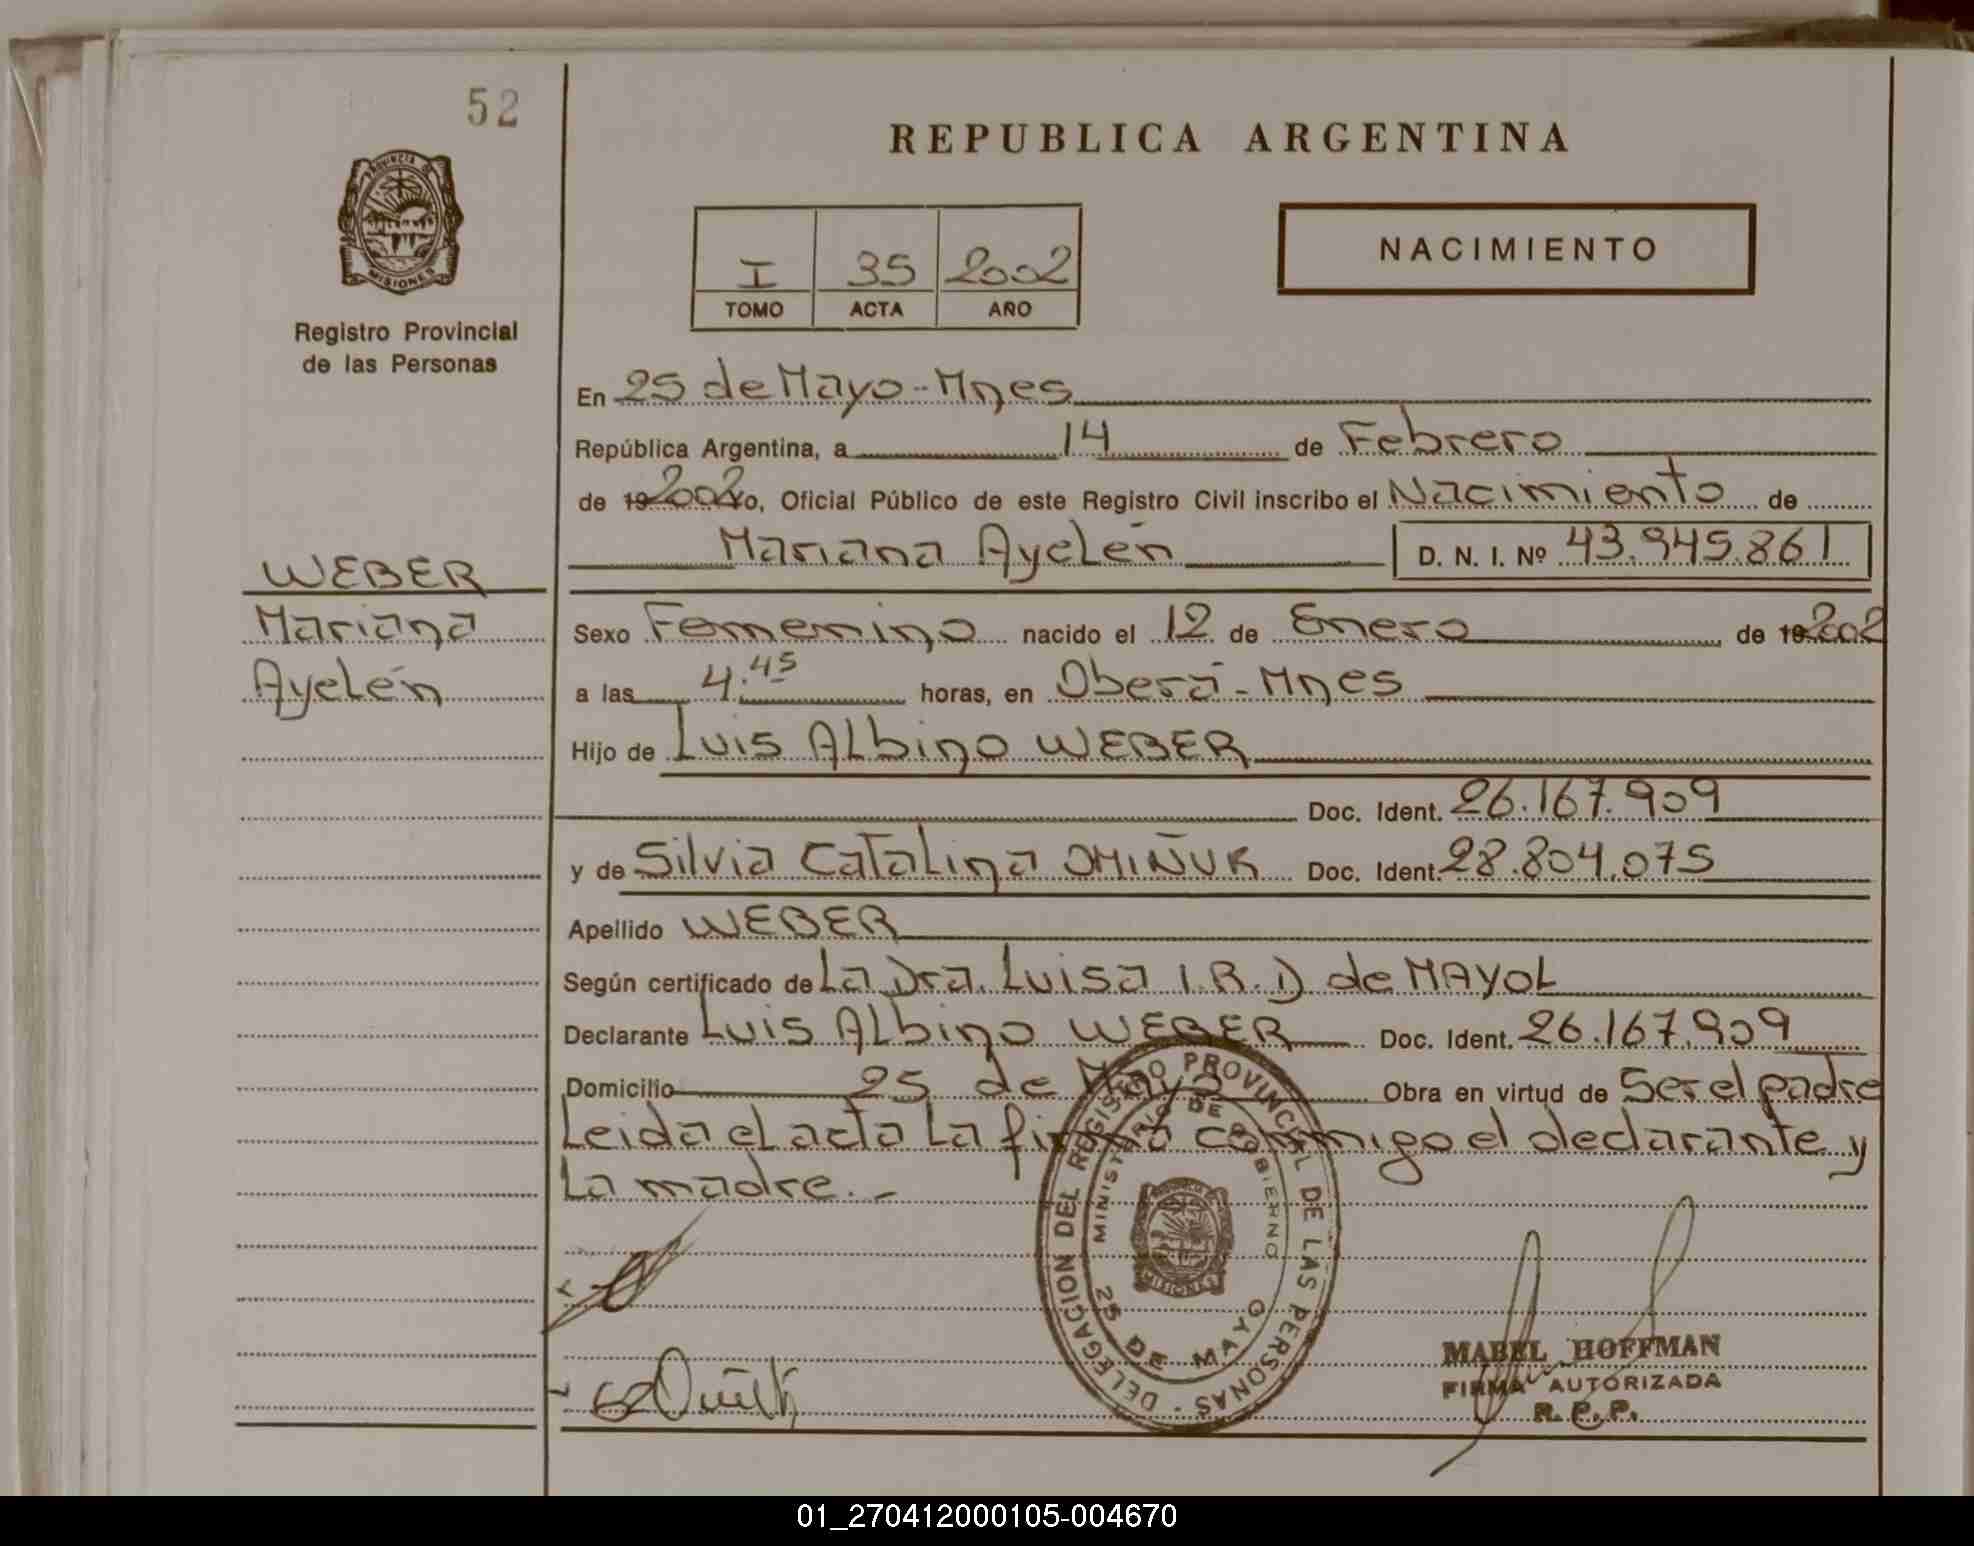 52
REPUBLICA ARGENTINA
PROVINCIA DE MISIONES
Registro Provincial
de las Personas
I 35 2002
TOMO ACTA AÑO
NACIMIENTO
En 25 de Mayo - Mnes
República Argentina, a 14 de Febrero
de 19 2002 Yo, Oficial Público de este Registro Civil inscribo el Nacimiento de
Mariana Ayelén D. N. I. Nº 43.945.861
WEBER
Mariana
Ayelén
Sexo Femenino nacido el 12 de Enero de 19 2002
a las 4.45 horas, en Oberá - Mnes
Hijo de Luis Albino WEBER
Doc. Ident. 26.167.909
y de Silvia Catalina OMIÑUK Doc. Ident. 28.804.075
Apellido WEBER
Según certificado de La Dra. Luisa I.R.D de MAYOL
Declarante Luis Albino WEBER Doc. Ident. 26.167.909
Domicilio 25 de Mayo Obra en virtud de Ser el padre
Leida el acta la firma conmigo el declarante y
la madre.-
DELEGACION DEL REGISTRO PROVINCIAL DE LAS PERSONAS
MINISTERIO DE GOBIERNO
MISIONES
25 DE MAYO
MABEL HOFFMAN
FIRMA AUTORIZADA
R. P. P.
01_270412000105-004670